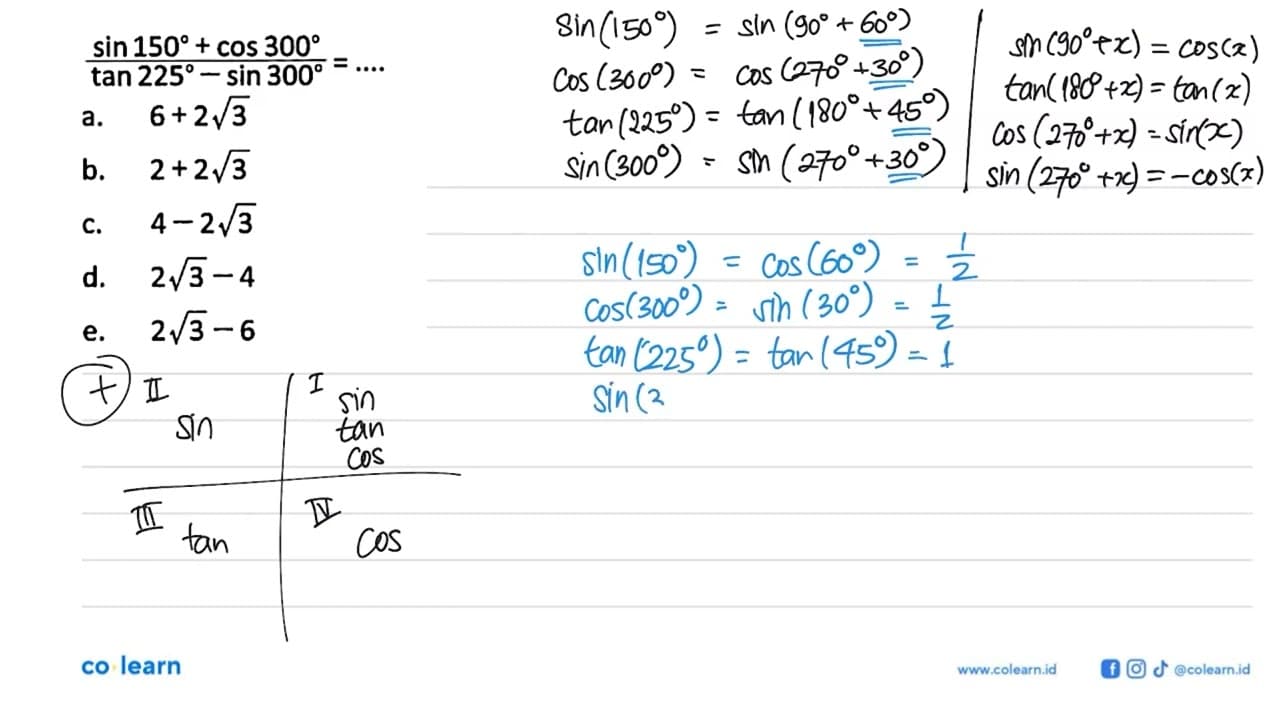 sin 150° + cos 300°
tan 225° − sin 300° = ....
a. 6 + 2√3
b. 2 + 2√3
c. 4 − 2√3
d. 2√3 − 4
e. 2√3 − 6
sin(150°) = sin(90° + 60°)
cos(300°) = cos(270° + 30°)
tan(225°) = tan(180° + 45°)
sin(300°) = sin(270° + 30°)
sin(90° + x) = cos(x)
tan(180° + x) = tan(x)
cos(270° + x) = sin(x)
sin(270° + x) = −cos(x)
sin(150°) = cos(60°) = 1/2
cos(300°) = sin(30°) = 1/2
tan(225°) = tan(45°) = 1
sin(3
+
II
sin
I
sin
tan
cos
III
tan
IV
cos
co learn
www.colearn.id
@colearn.id